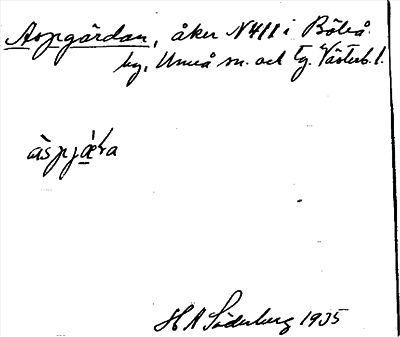 Aspgärdan, åker N411 i Böleå
by, Umeå sn. och tg. Västerb. l.
àspjæ̀ra
H A Söderberg 1935